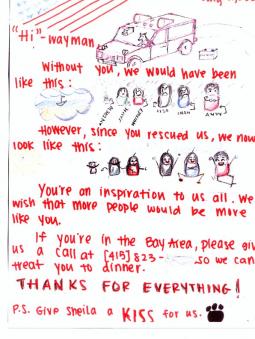 "Hi"-wayman
Without you, we would have been
like this:
LISA
However, since you rescued us, we now
look like this:
You're an inspiration to us all. We
wish that more people would be more
like you.
If you're in the Bay Area, please giv
us a call at [415] 823-
so we can
treat you to dinner.
THANKS FOR EVERYTHING!
P.S. Give Sheila a KISS for us.